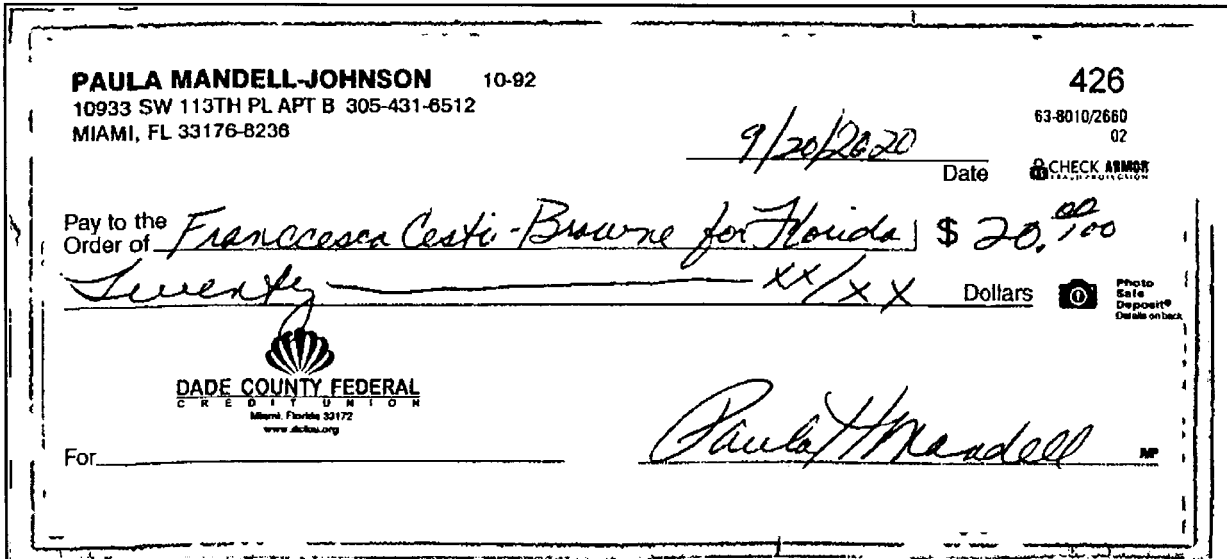 PAULA MANDELL-JOHNSON 10-92
426
10933 SW 113TH PL APT B 305-431-6512
63-8010/2660
MIAMI, FL 33176-8236
02
9/20/2020
Date
CHECK ARMOR
FRAUD PROTECTION
Pay to the
Order of Franccesca Cesti-Browne for Florida $ 20.00/100
Twenty xx/xx Dollars
Photo
Safe
Deposit®
Details on back
DADE COUNTY FEDERAL
CREDIT UNION
Miami, Florida 33172
www.dcfcu.org
For
Paula H Mandell
MP